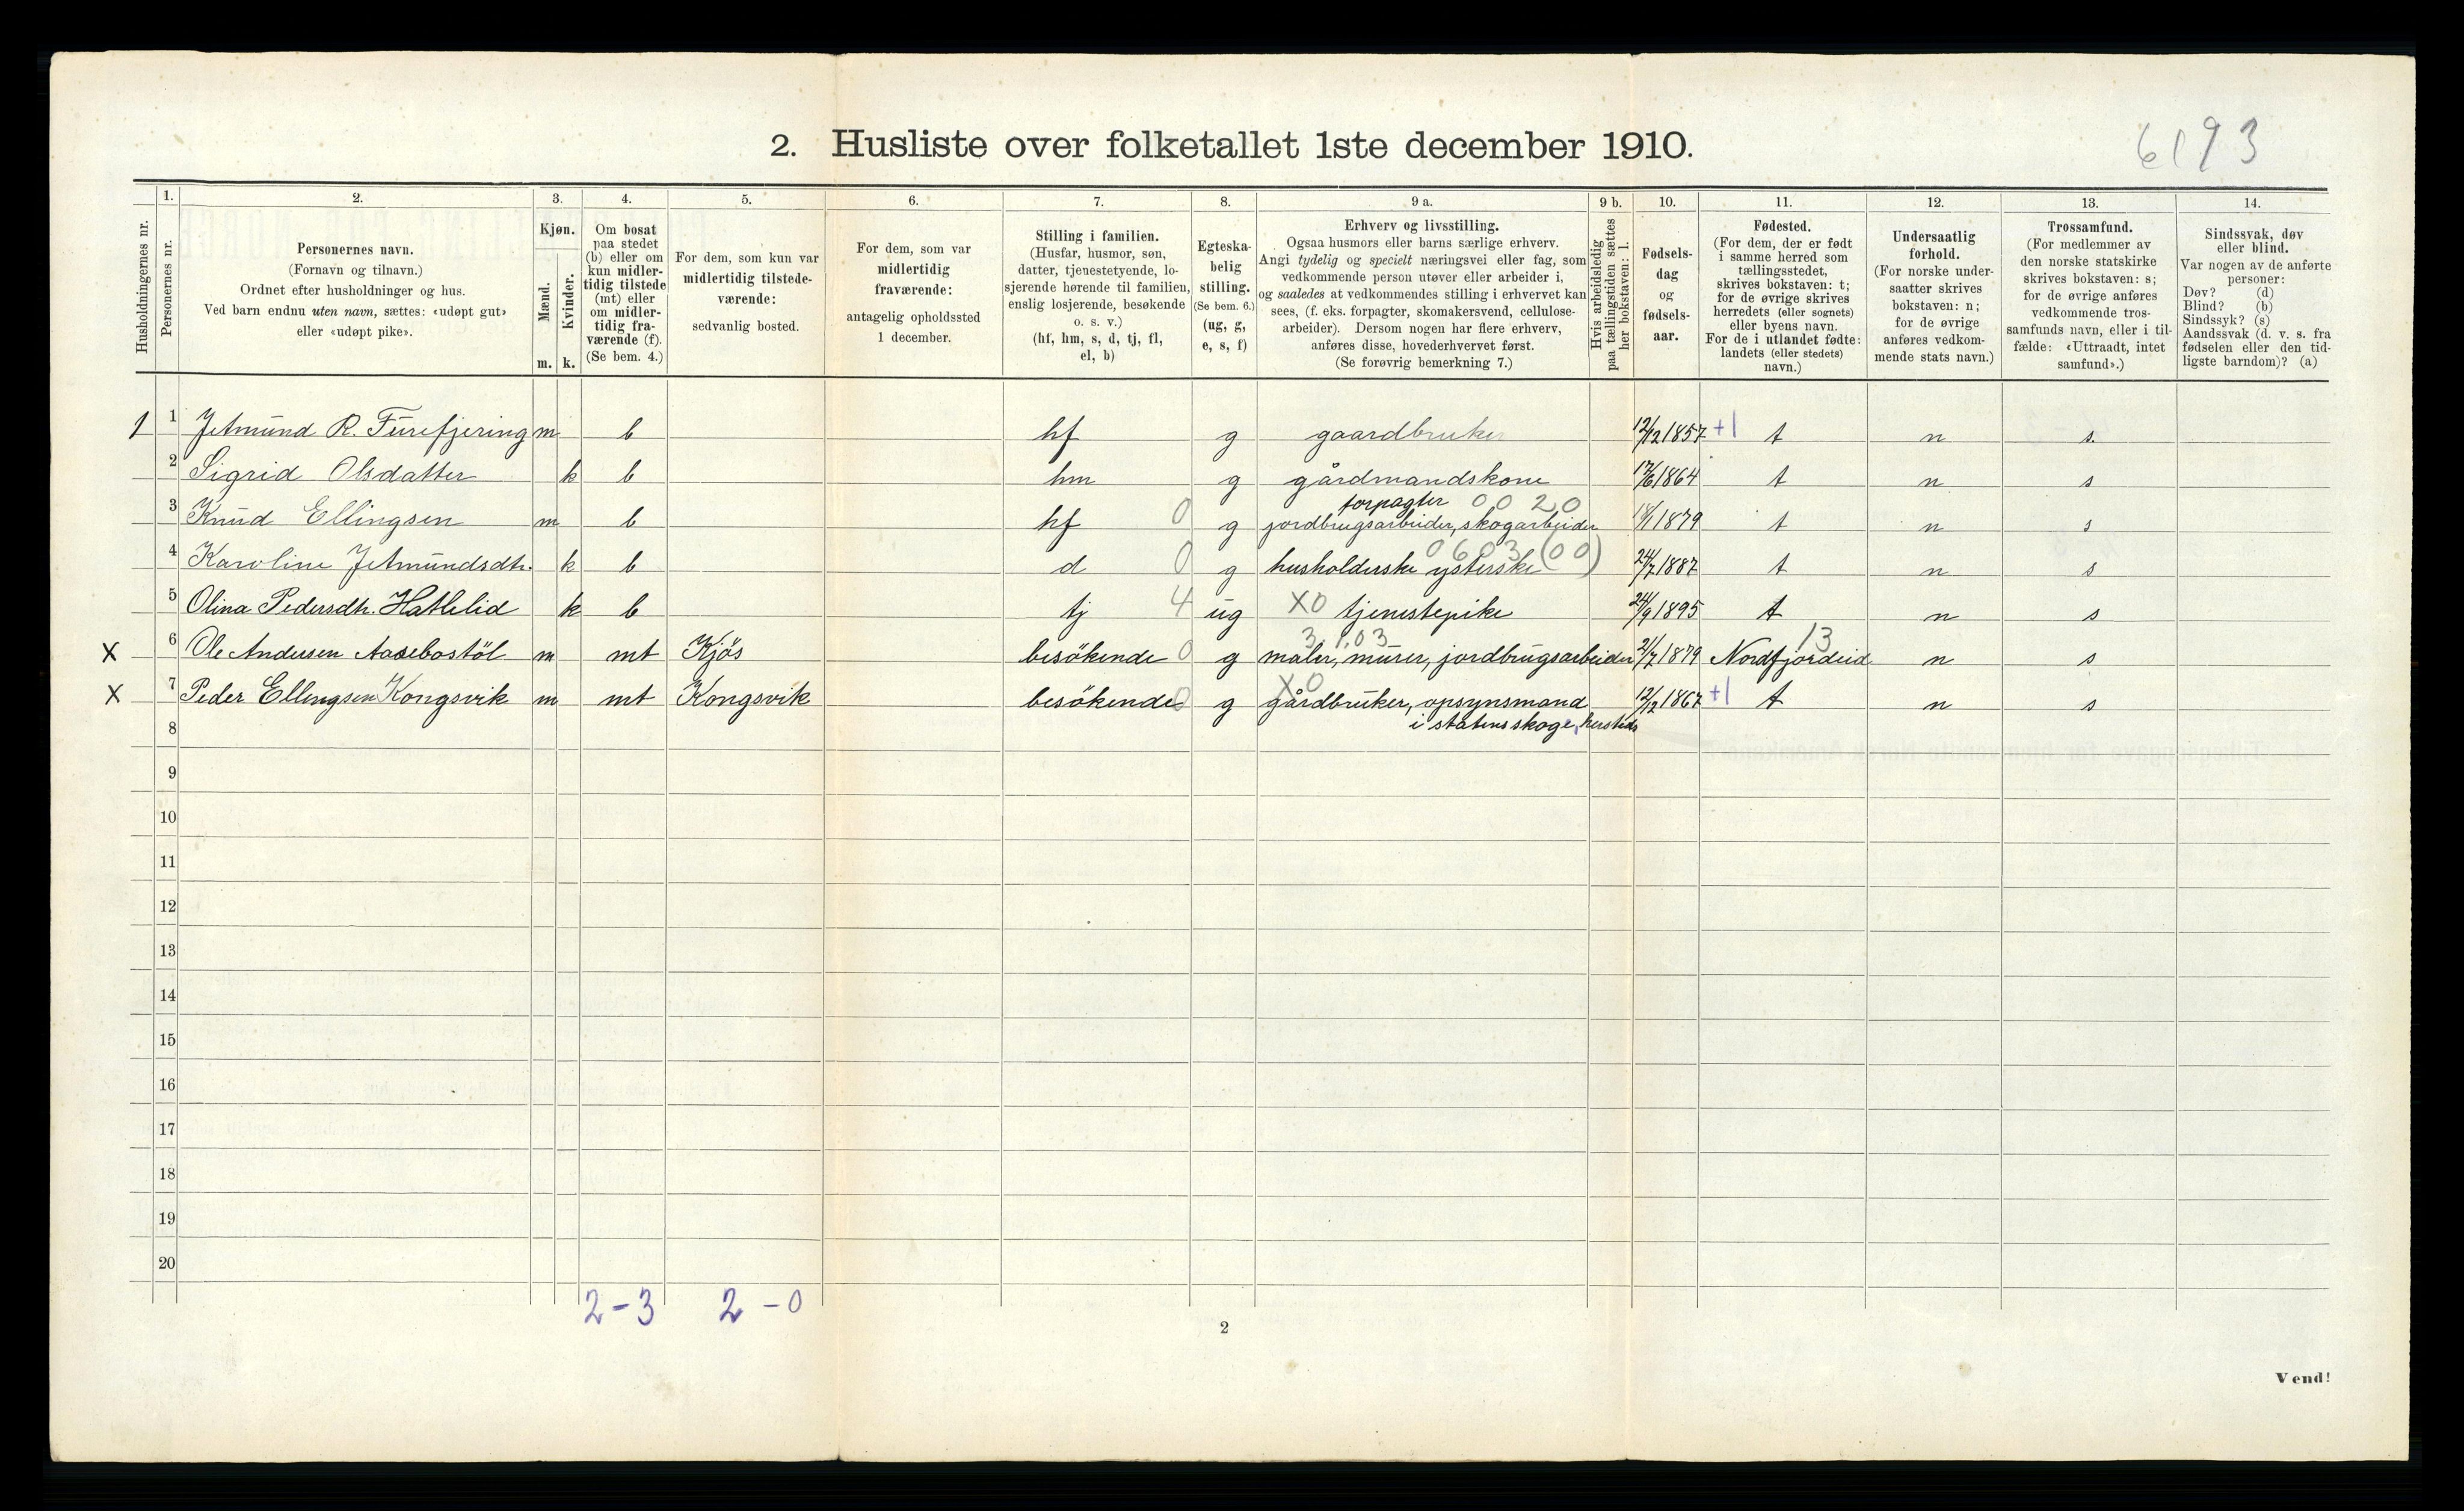 2. Husliste over folketallet 1ste december 1910.
6193
Husholdningernes nr.
1.
Personernes nr.
2.
Personernes navn.
(Fornavn og tilnavn.)
Ordnet efter husholdninger og hus.
Ved barn endnu uten navn, sættes: «udøpt gut»
eller «udøpt pike».
3.
Kjøn.
Mænd.
Kvinder.
m. k.
4.
Om bosat
paa stedet
(b) eller om
kun midler-
tidig tilstede
(mt) eller
om midler-
tidig fra-
værende (f).
(Se bem. 4.)
5.
For dem, som kun var
midlertidig tilstede-
værende:
sedvanlig bosted.
6.
For dem, som var
midlertidig
fraværende:
antagelig opholdssted
1 december.
7.
Stilling i familien.
(Husfar, husmor, søn,
datter, tjenestetyende, lo-
sjerende hørende til familien,
enslig losjerende, besøkende
o. s. v.)
(hf, hm, s, d, tj, fl,
el, b)
8.
Egteska-
belig
stilling.
(Se bem. 6.)
(ug, g,
e, s, f)
9 a.
Erhverv og livsstilling.
Ogsaa husmors eller barns særlige erhverv.
Angi tydelig og specielt næringsvei eller fag, som
vedkommende person utøver eller arbeider i,
og saaledes at vedkommendes stilling i erhvervet kan
sees, (f. eks. forpagter, skomakersvend, cellulose-
arbeider). Dersom nogen har flere erhverv,
anføres disse, hovederhvervet først.
(Se forøvrig bemerkning 7.)
9 b.
Hvis arbeidsledig
paa tællingstiden sættes
her bokstaven: l.
10.
Fødsels-
dag
og
fødsels-
aar.
11.
Fødested.
(For dem, der er født
i samme herred som
tællingsstedet,
skrives bokstaven: t;
for de øvrige skrives
herredets (eller sognets)
eller byens navn.
For de i utlandet fødte:
landets (eller stedets)
navn.)
12.
Undersaatlig
forhold.
(For norske under-
saatter skrives
bokstaven: n;
for de øvrige
anføres vedkom-
mende stats navn.)
13.
Trossamfund.
(For medlemmer av
den norske statskirke
skrives bokstaven: s;
for de øvrige anføres
vedkommende tros-
samfunds navn, eller i til-
fælde: «Uttraadt, intet
samfund».)
14.
Sindssvak, døv
eller blind.
Var nogen av de anførte
personer:
Døv? (d)
Blind? (b)
Sindssyk? (s)
Aandssvak (d. v. s. fra
fødselen eller den tid-
ligste barndom)? (a)
1 1 Jetmund R. Furefjering m b hf g gaardbruker 12/12 1857 +1 t n s.
2 Sigrid Olsdatter k b hm g gårdmandskone 17/6 1864 t n s
forpagter 0020
3 Knud Ellingsen m b hf 0 g jordbrugsarbeider, skogarbeider 18/1 1879 t n s
0603 (00)
4 Karoline Jetmundsdtr. k b d 0 g husholderske ysterske 24/7 1887 t n s
5 Olina Pedersdtr. Hatlelid k b tj 4 ug X0 tjenestepike 24/9 1895 t n s
3,103 13
X 6 Ole Andersen Aasebostöl m mt Kjös besökende 0 g maler, murer, jordbrugsarbeider 21/7 1879 Nordfjordeid n s
X0
X 7 Peder Ellingsen Kongsvik m mt Kongsvik besökende 0 g gårdbruker, opsynsmand 12/12 1867 +1 t n s
i statens skoge, hersteds
8
9
10
11
12
13
14
15
16
17
18
19
20
2-3 2-0
2
Vend!